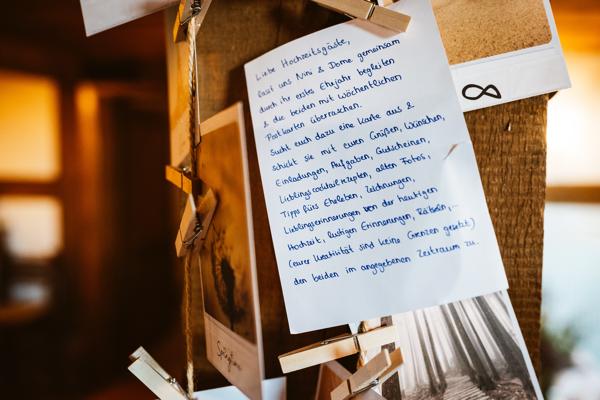 Liebe Hochzeitsgäste,
lasst uns Nini & Dome gemeinsam
durch ihr erstes Ehejahr begleiten
& die beiden mit wöchentlichen
Postkarten überraschen.
Sucht euch dazu eine Karte aus &
schickt sie mit euren Grüßen, Wünschen,
Einladungen, Aufgaben, Gutscheinen,
Lieblingscocktailrezepten, alten Fotos,
Tipps fürs Eheleben, Zeichnungen,
Lieblingserinnerungen von der heutigen
Hochzeit, lustigen Erinnerungen, Rätseln,...
(eurer Kreativität sind keine Grenzen gesetzt)
den beiden im angegebenen Zeitraum zu.